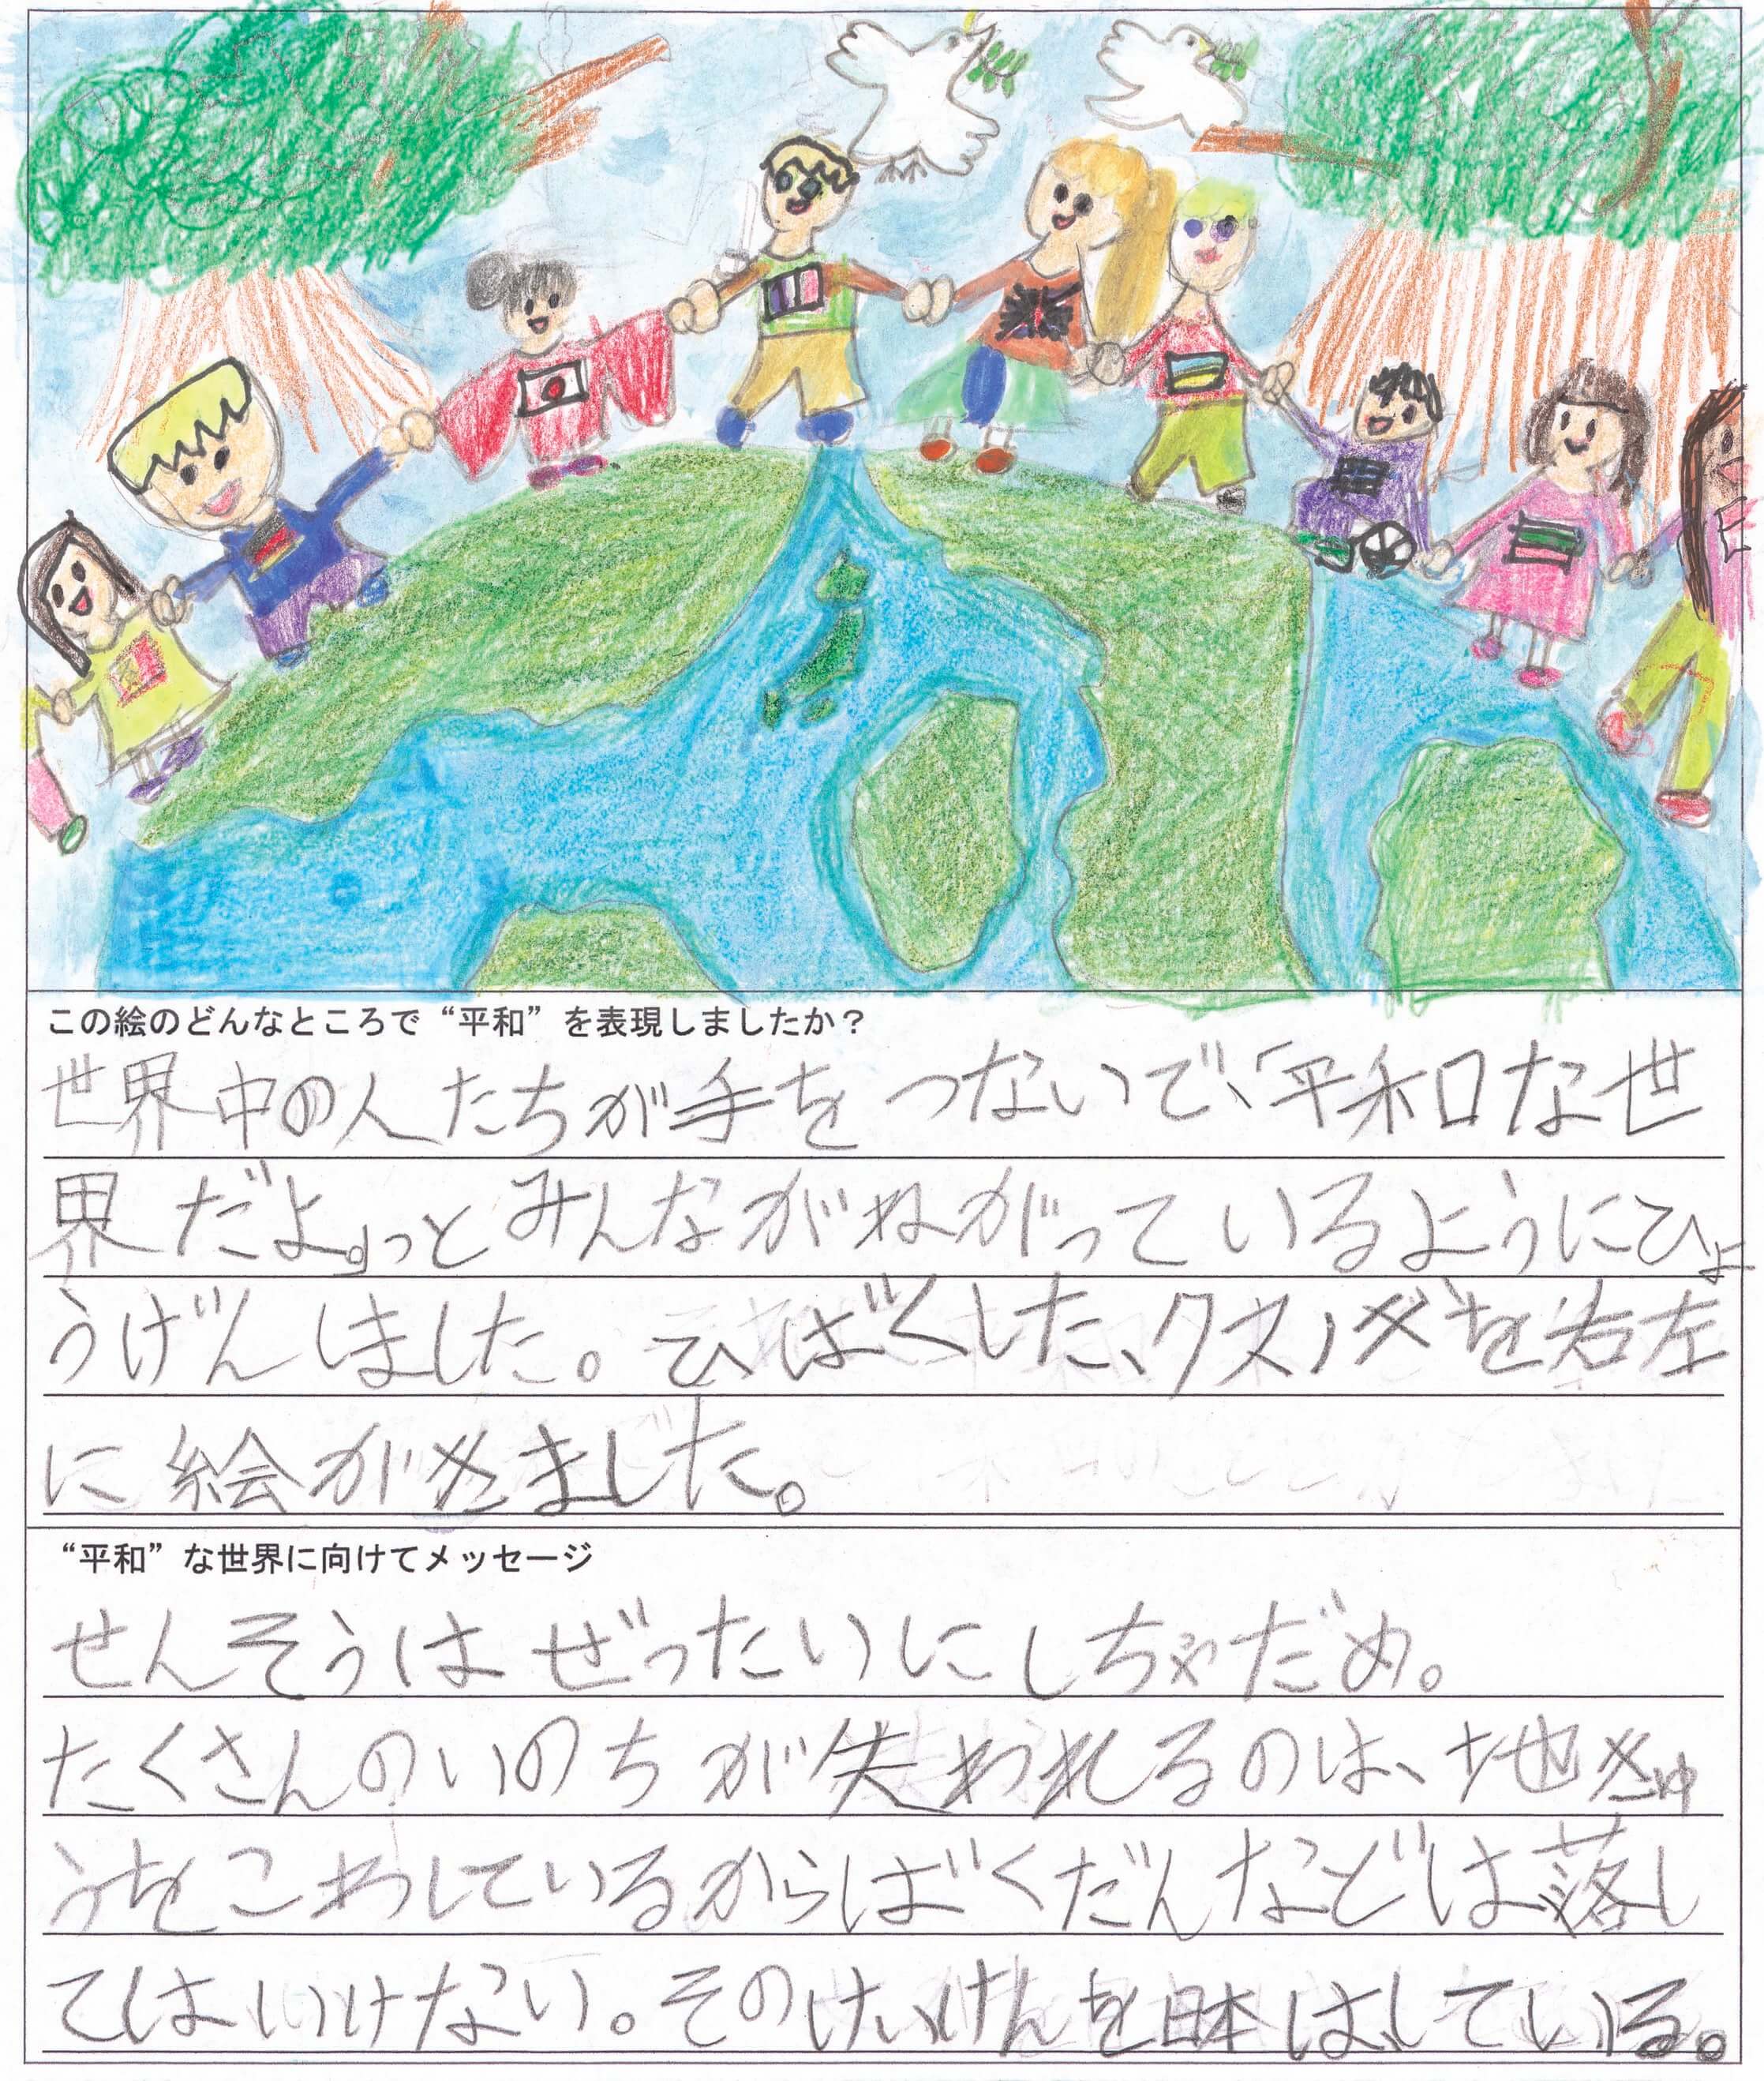 この絵のどんなところで“平和”を表現しましたか？
世界中の人たちが手をつないで、「平和な世
界だよ。」っとみんながねがっているようにひょ
うげんしました。ひばくした、クスノギを右左
に絵がきました。
“平和”な世界に向けてメッセージ
せんそうはぜったいにしちゃだめ。
たくさんのいのちが失われるのは、地きゅ
うをこわしているからばくだんなどは落し
てはいけない。そのけいけんを日本はしている。